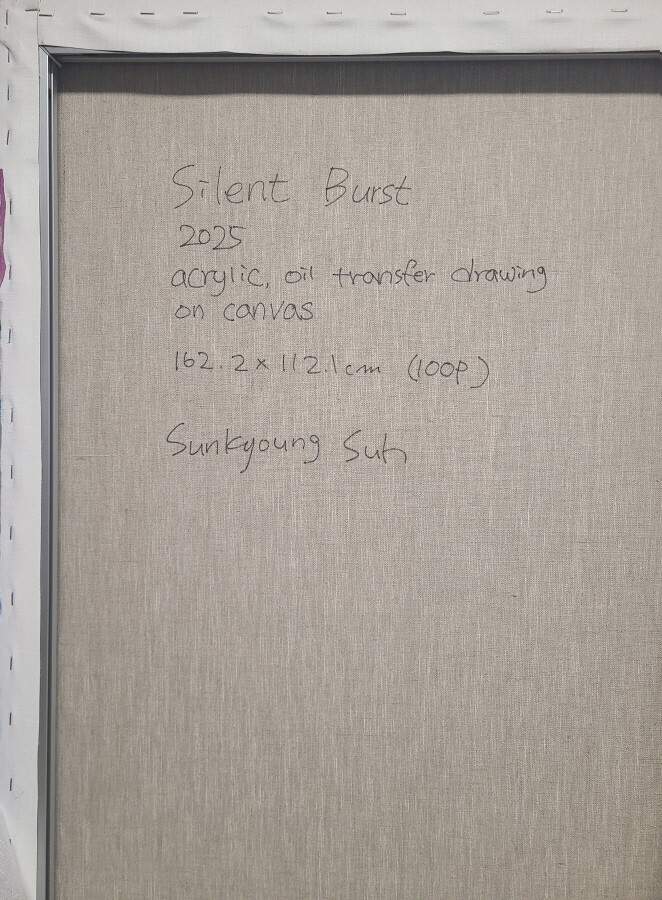 Silent Burst
2025
acrylic, oil transfer drawing
on canvas
162.2 x 112.1cm (100P)
Sunkyoung Suh